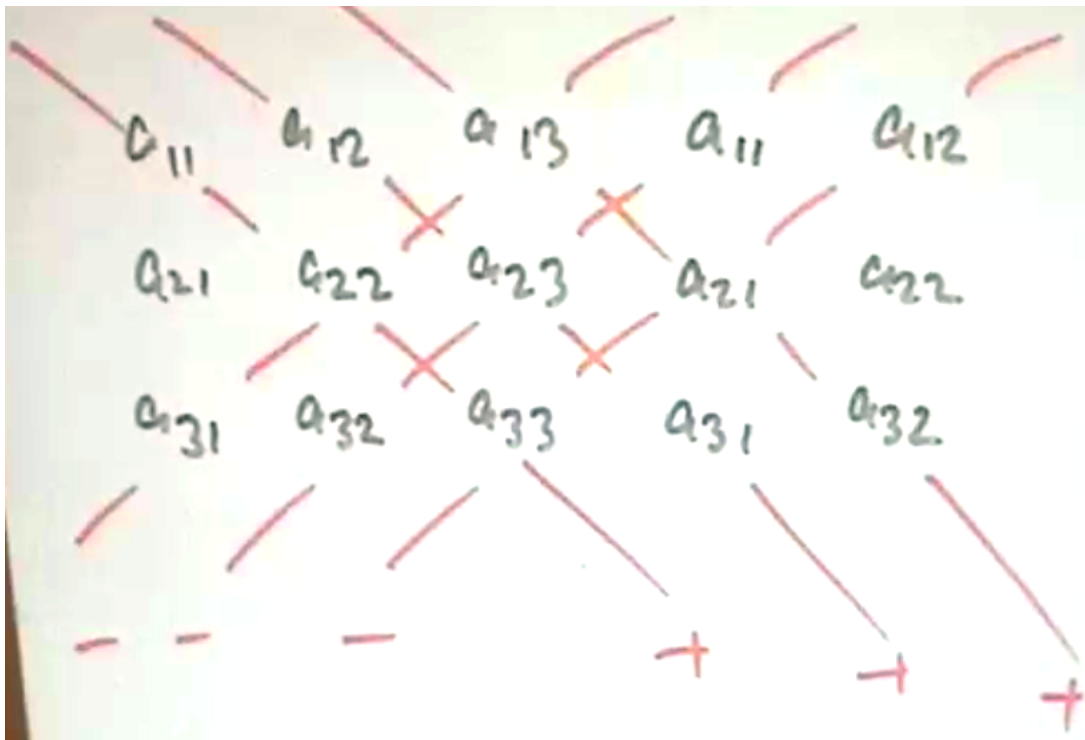 a11 a12 a13 a11 a12
a21 a22 a23 a21 a22
a31 a32 a33 a31 a32
- - - + + +